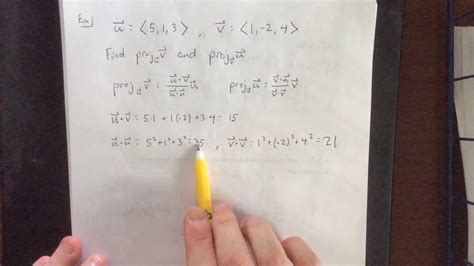 Ex) u⃗ = ⟨5, 1, 3⟩ , v⃗ = ⟨1, -2, 4⟩
Find proj_u⃗ v⃗ and proj_v⃗ u⃗
proj_u⃗ v⃗ = (u⃗·v⃗)/(u⃗·u⃗) u⃗ proj_v⃗ u⃗ = (u⃗·v⃗)/(v⃗·v⃗) v⃗
u⃗·v⃗ = 5·1 + 1(-2) + 3·4 = 15
u⃗·u⃗ = 5² + 1² + 3² = 35 , v⃗·v⃗ = 1² + (-2)² + 4² = 21